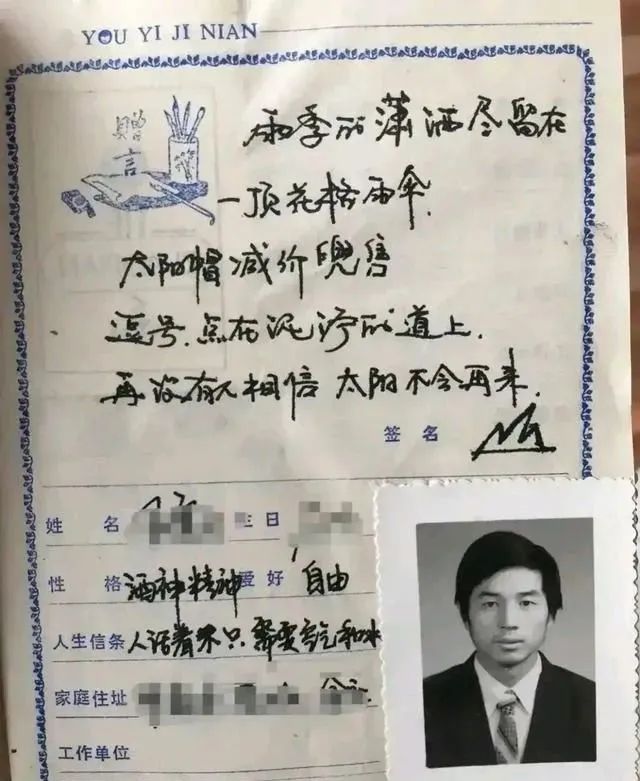 YOU YI JI NIAN
赠言
雨季的潇洒尽留在
一顶花格雨伞.
太阳帽减价兜售
逗号.点在泥泞的道上.
再没有人相信太阳不会再来.
签名
姓名 生日
性格 酒神精神 爱好 自由
人生信条 人活着不只需要空气和水
家庭住址
工作单位